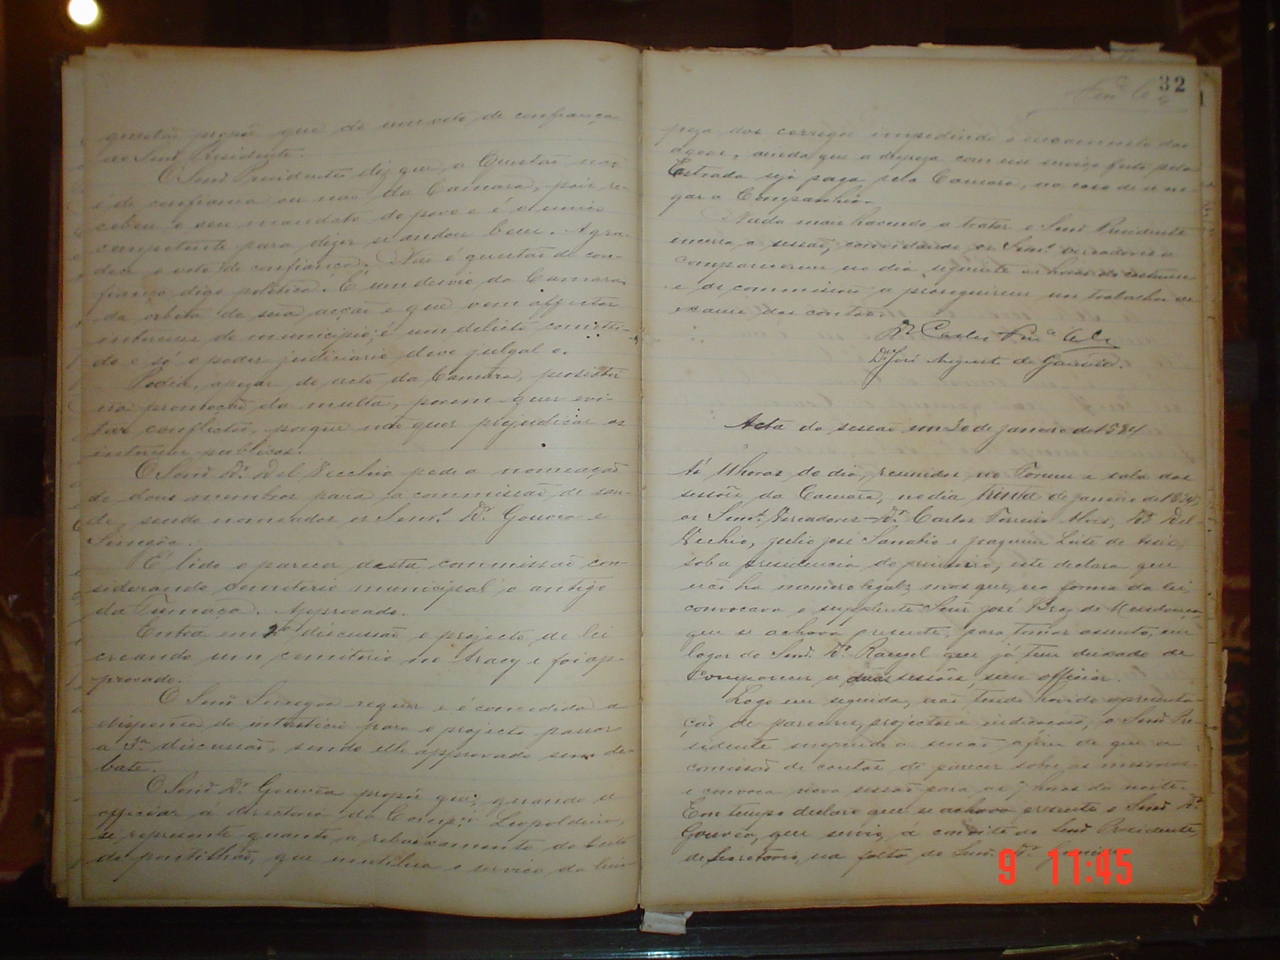 questão propõe que dê um voto de confiança
ao Senr Presidente.
O Senr Presidente diz que, a Questão não
é de confiança ou não da Camara, pois re-
cebeu o seu mandato do povo e é o unico
competente para dizer se andou bem. Agra-
dece o voto de confiança. Não é questão de con-
fiança digo politica. É um desvio da Camara
da orbita de sua acção e que vem affectar
interesses do municipio; é um delicto cometti-
do e só o poder judiciario deve julgal-o.
Podia, apezar do acto da Camara, persistir
na promoção da multa, porem quer evi-
tar conflictos, porque não quer prejudicar os
interesses publicos.
O Senr Dr. Del Vecchio pede a nomeação
de dous membros para a commissão de sau-
de, sendo nomeados os Senrs. Dr. Gouvêa e
É lido o parecer desta commissão con-
siderando cemiterio municipal o antigo
da Approvado.
Entra em 2ª discussão o projecto de lei
creando um cemiterio no e foi ap-
provado.
O Senr requer e é concedida a
dispensa de intersticio para o projecto passar
a 3ª discussão, sendo elle approvado sem de-
bate.
O Senr Dr. Gouvêa propõe que, quando se
officiar á directoria da Compª. Leopoldina,
se represente quanto a rebaixamento do leito
do pontilhão, que inutilisa o serviço da lim-
32
peza dos corregos impedindo o escoamento das
agoas, ainda que a despeza com esse serviço feito pela
Estrada seja paga pela Camara, no caso de se ne-
gar a Companhia.
Nada mais havendo a tratar o Senr Presidente
encerra a sessão, convidando os Senrs vereadores a
comparecerem no dia seguinte as horas do costume
e de commissão a proseguirem nos trabalhos de
exame das contas.
Dr Carlos
Dr José Augusto de Gouvêa.
Acta da sessão em 30 de janeiro de 1894
Ás 11 horas do dia, reunidos no Forum e sala das
sessões da Camara, no dia trinta de janeiro de 1894,
os Senrs. Vereadores Dr. Carlos Ferreira Alves, Dr Del
Vecchio, julio josé e joaquim Leite de
sob a presidencia do primeiro, este declara que
não ha numero legal; mas que, na forma da lei
convocava o supplente Senr josé Braz de Mendonça
que se achava presente, para tomar assento, em
logar do Senr. Dr. Rangel que já tem deixado de
comparecer a duas sessões, sem officiar.
Logo em seguida, não tendo havido apresenta-
ção de pareceres, projectos e indicações, o Senr Pre-
sidente suspende a sessão afim de que a
comissão de contas dê parecer sobre as mesmas
e convoca nova sessão para as 7 horas da noite.
Em tempo declaro que se achava presente o Senr Dr
Gouvêa, que serviu, a convite do Senr Presidente,
de Secretario, na falta do Senr. Dr.
9 11:45